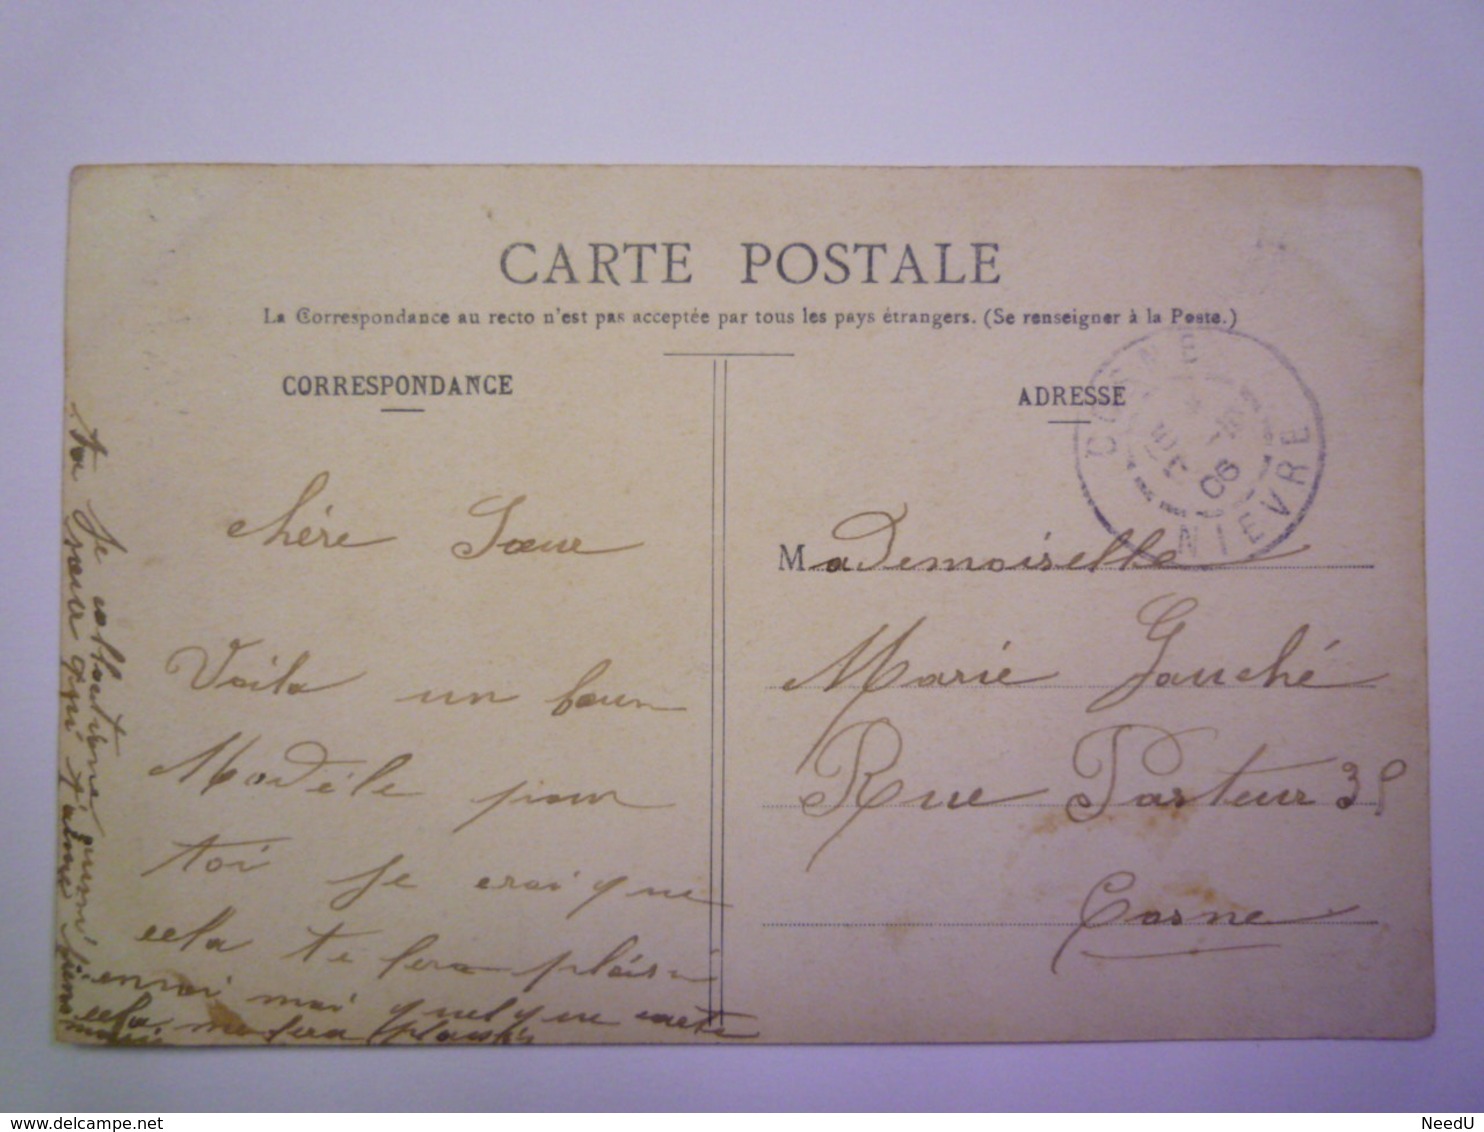 CARTE POSTALE
La Correspondance au recto n'est pas acceptée par tous les pays étrangers. (Se renseigner à la Poste.)
CORRESPONDANCE
chère Sœur
Voila un boun
Modéle pour
toi je crai que
cela te fera plaisi
envoi moi quelque carte
cela me fera plaisir
ta sœur qui t'aime bien
Marie
Je collectionne
ADRESSE
COSNE
06
NIEVRE
Mademoiselle
Marie Gauché
Rue Pasteur 39
Cosne
delcampe.net
NeedU